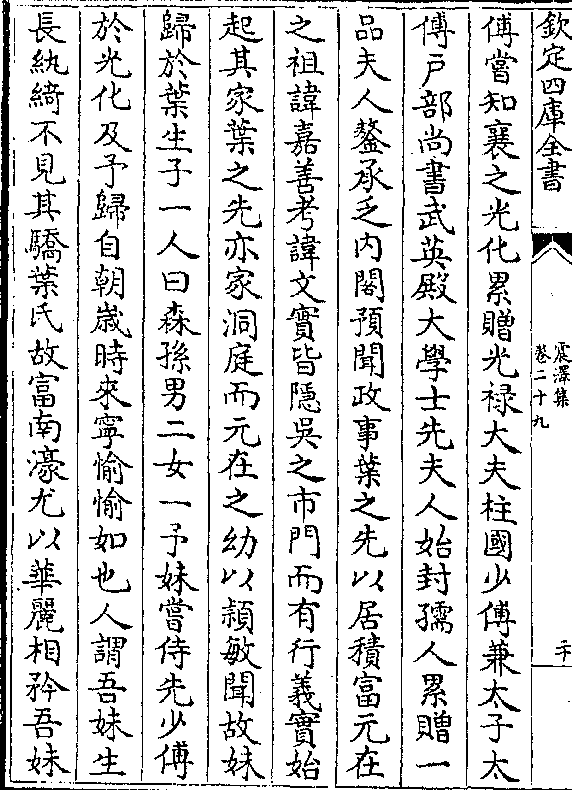 欽定四庫全書
震澤集
卷二十九
二十
傅嘗知襄之光化累贈光禄大夫柱國少傅兼太子太
傅戸部尚書武英殿大學士先夫人始封孺人累贈一
品夫人鏊承乏内閣預聞政事葉之先以居積富元在
之祖諱嘉善考諱文實皆隱吳之市門而有行義實始
起其家葉之先亦家洞庭而元在之幼以頴敏聞故妹
歸於葉生子一人曰森孫男二女一予妹嘗侍先少傅
於光化及予歸自朝嵗時來寧愉愉如也人謂吾妹生
長紈綺不見其驕葉氏故富南濠尤以華麗相矜吾妹